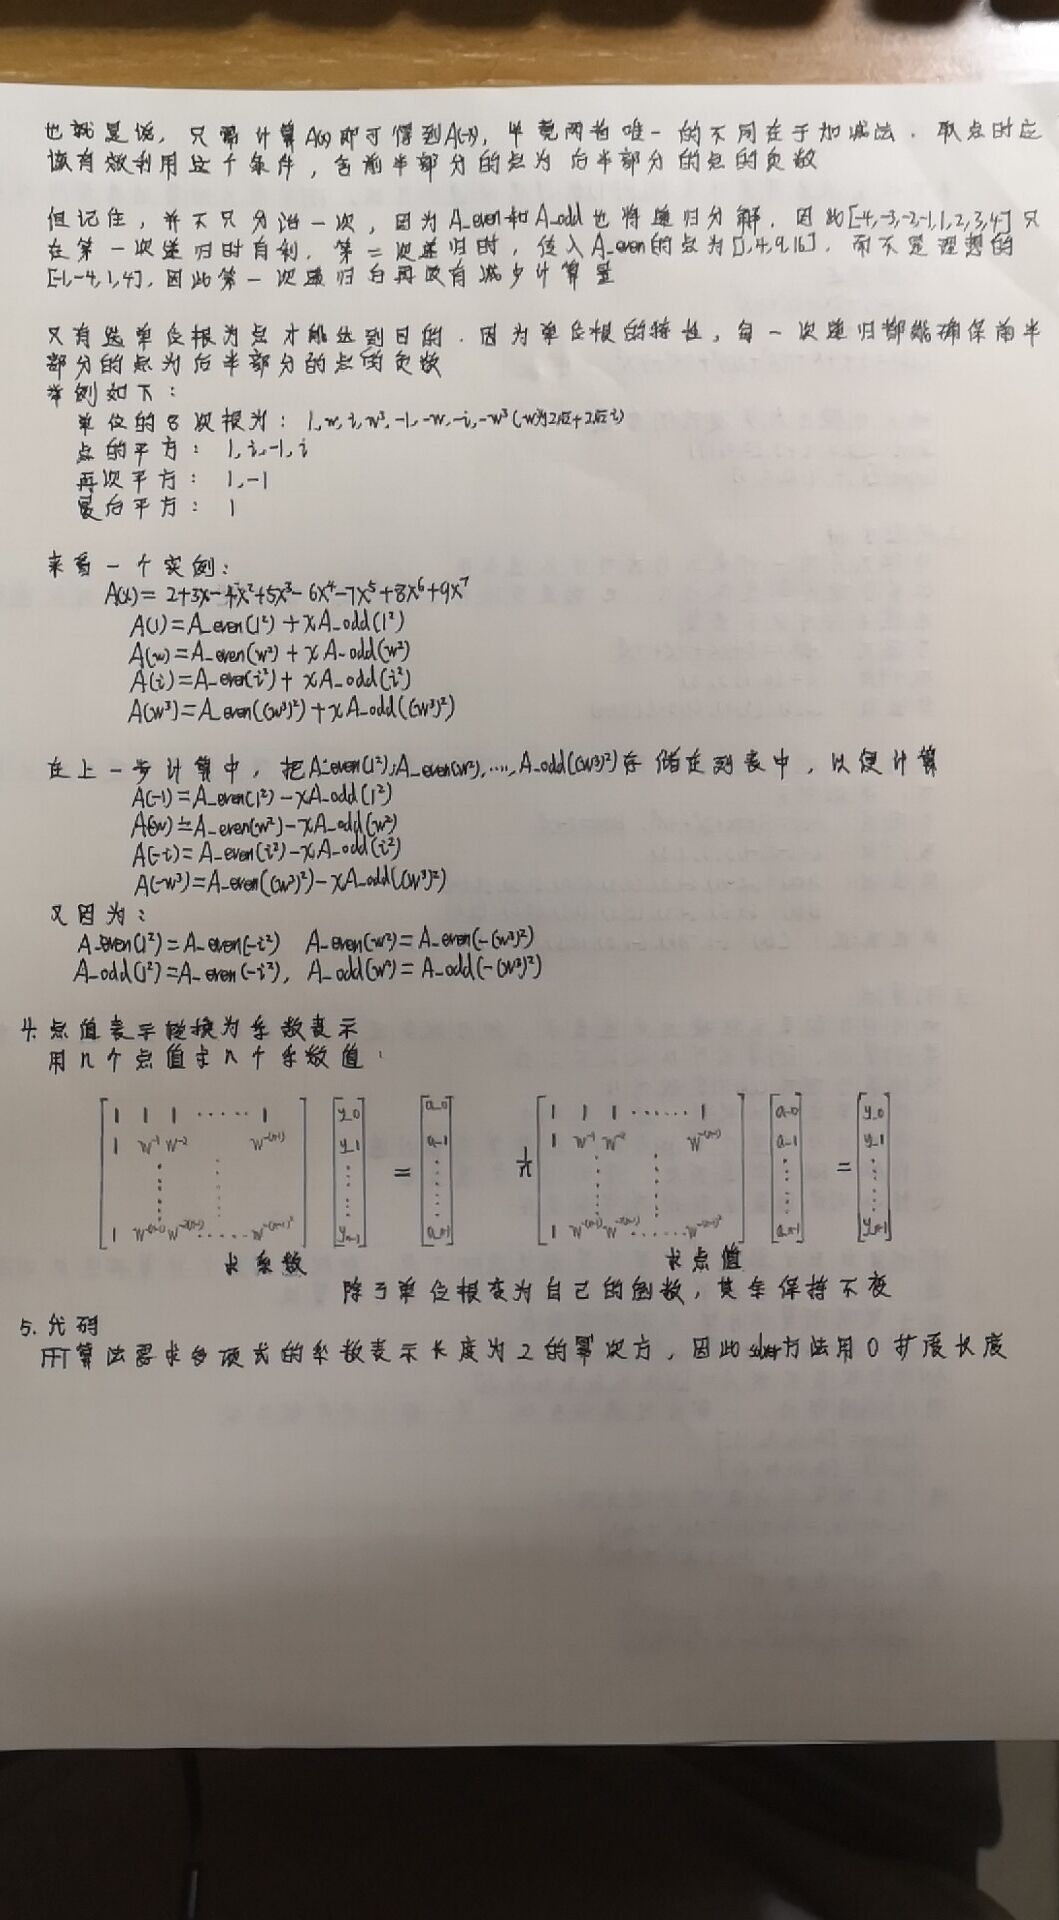 也就是说，只需计算A(x)即可得到A(-x)，毕竟两者唯一的不同在于加减法．取点时应
该有效利用这个条件，含前半部分的点为后半部分的点的负数
但记住，并不只分治一次，因为A_even和A_odd也将递归分解．因此[-4,-3,-2,-1,1,2,3,4]只
在第一次递归时有利．第二次递归时，传入A_even的点为[1,4,9,16]，而不是理想的
[-1,-4,1,4]，因此第一次递归后再没有减少计算量
只有选单位根为点才能达到目的．因为单位根的特性，每一次递归都能确保前半
部分的点为后半部分的点的负数
举例如下：
单位的8次根为：1,w,i,w³,-1,-w,-i,-w³(w为2√2+2√2i)
点的平方：1,i,-1,i
再次平方：1,-1
最后平方：1
来看一个实例：
A(x)=2+3x-4x²+5x³-6x⁴-7x⁵+8x⁶+9x⁷
A(1)=A_even(1²)+xA_odd(1²)
A(w)=A_even(w²)+xA_odd(w²)
A(i)=A_even(i²)+xA_odd(i²)
A(w³)=A_even((w³)²)+xA_odd((w³)²)
在上一步计算中，把A_even(1²),A_even(w²),...,A_odd((w³)²)存储在列表中，以便计算
A(-1)=A_even(1²)-xA_odd(1²)
A(-w)=A_even(w²)-xA_odd(w²)
A(-i)=A_even(i²)-xA_odd(i²)
A(-w³)=A_even((w³)²)-xA_odd((w³)²)
又因为：
A_even(1²)=A_even(-i²) A_even(w²)=A_even(-(w³)²)
A_odd(1²)=A_even(-i²), A_odd(w²)=A_odd(-(w³)²)
4.点值表示转换为系数表示
用n个点值求n个系数值：
1 1 1 ...... 1 y_0 a_0 1 1 1 ...... 1 a_0 y_0
1 w⁻¹ w⁻² w⁻⁽ⁿ⁻¹⁾ y_1 = a_1 1/n 1 w⁻¹ w⁻² w⁻⁽ⁿ⁻¹⁾ a_1 = y_1
1 w⁻⁽ⁿ⁻¹⁾ w⁻²⁽ⁿ⁻¹⁾ ...... w⁻⁽ⁿ⁻¹⁾² y_n-1 a_n-1 1 w⁻⁽ⁿ⁻¹⁾ w⁻²⁽ⁿ⁻¹⁾ ...... w⁻⁽ⁿ⁻¹⁾² a_n-1 y_n-1
求系数 求点值
除了单位根变为自己的倒数，其余保持不变
5.代码
FFT算法要求多项式的系数表示长度为2的幂次方，因此方法用0扩展长度